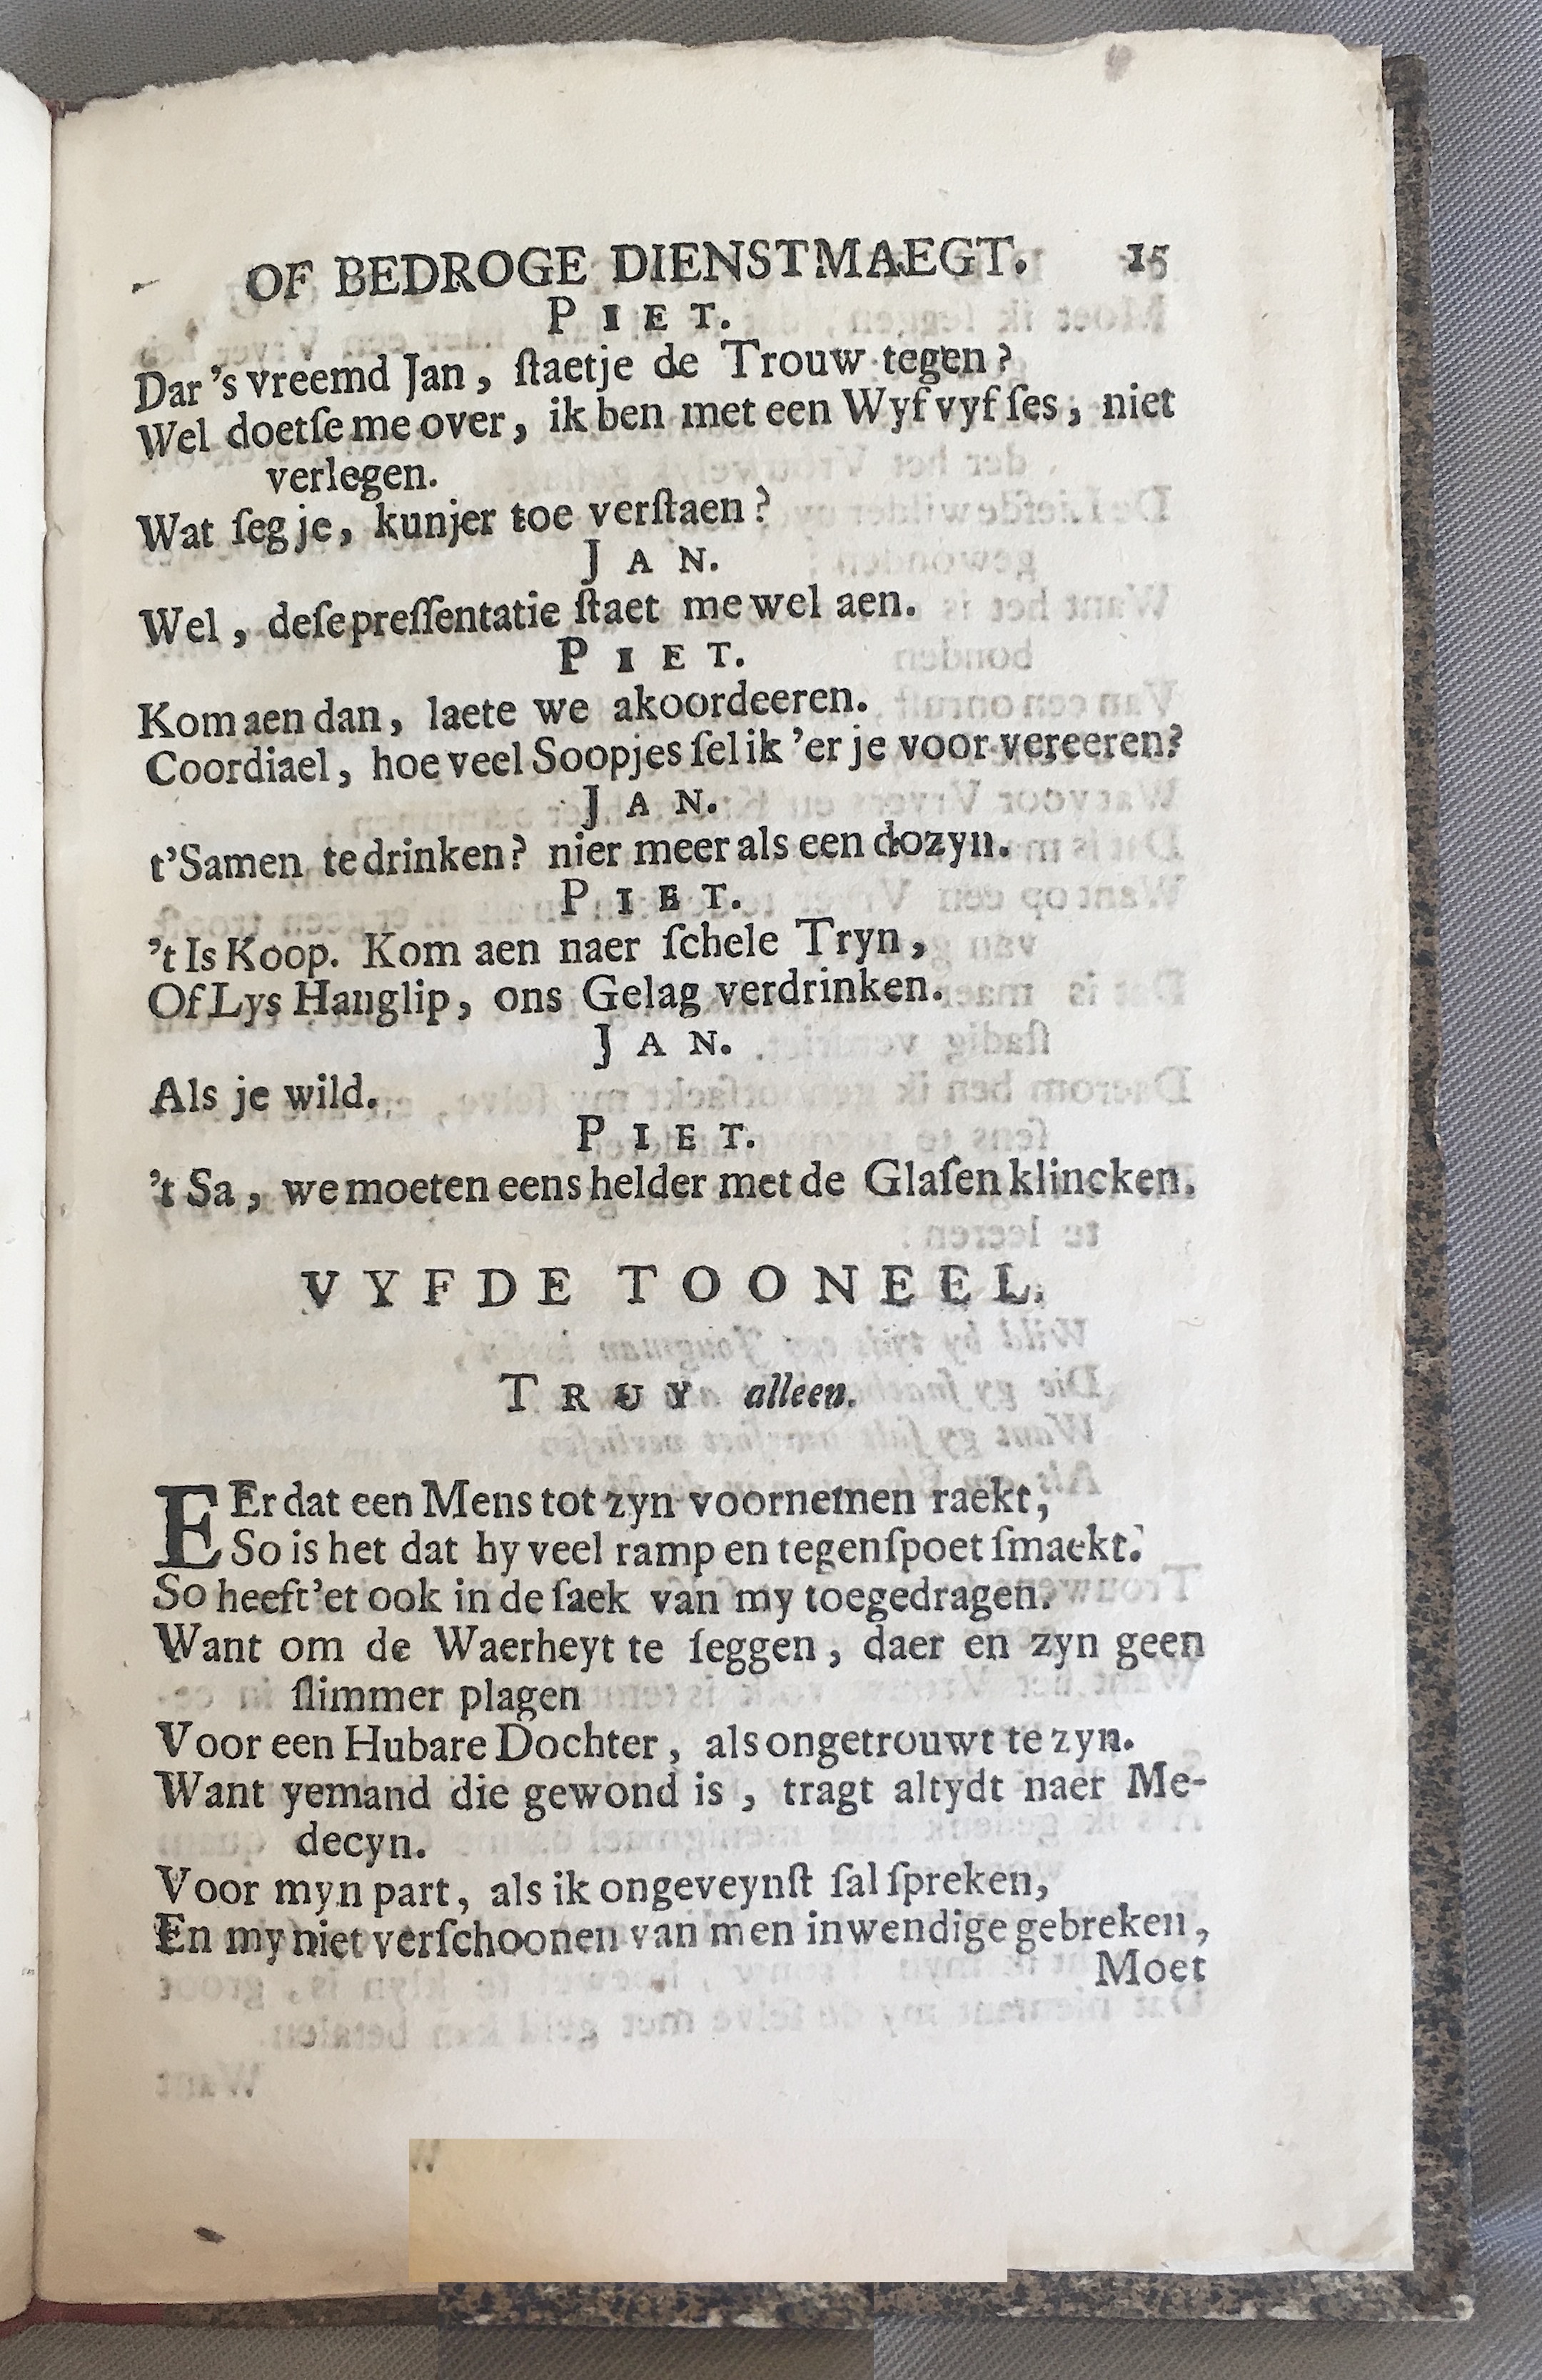 OF BEDROGE DIENSTMAEGT. 15
PIET.
Dar 's vreemd Jan, ſtaetje de Trouw tegen?
Wel doetſe me over, ik ben met een Wyf vyf ſes, niet
verlegen.
Wat ſeg je, kunjer toe verſtaen?
JAN.
Wel, deſe preſſentatie ſtaet me wel aen.
PIET.
Kom aen dan, laete we akoordeeren.
Coordiael, hoe veel Soopjes ſel ik 'er je voor vereeren?
JAN.
t'Samen te drinken? nier meer als een dozyn.
PIET.
't Is Koop. Kom aen naer ſchele Tryn,
Of Lys Hanglip, ons Gelag verdrinken.
JAN.
Als je wild.
PIET.
't Sa, we moeten eens helder met de Glaſen klincken.
VYFDE TOONEEL.
TRUY alleen.
EEr dat een Mens tot zyn voornemen raekt,
So is het dat hy veel ramp en tegenſpoet ſmaekt.
So heeft 'et ook in de ſaek van my toegedragen.
Want om de Waerheyt te ſeggen, daer en zyn geen
ſlimmer plagen
Voor een Hubare Dochter, als ongetrouwt te zyn.
Want yemand die gewond is, tragt altydt naer Me-
decyn.
Voor myn part, als ik ongeveynſt ſal ſpreken,
En my niet verſchoonen van men inwendige gebreken,
Moet